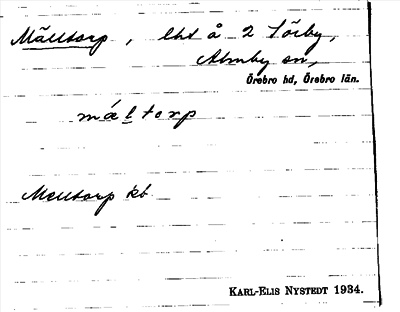 Mälltorp, lht å 2 Törby,
Almby sn,
Örebro hd, Örebro län.
mǽltorp
Melltorp kb
KARL-ELIS NYSTEDT 1934.